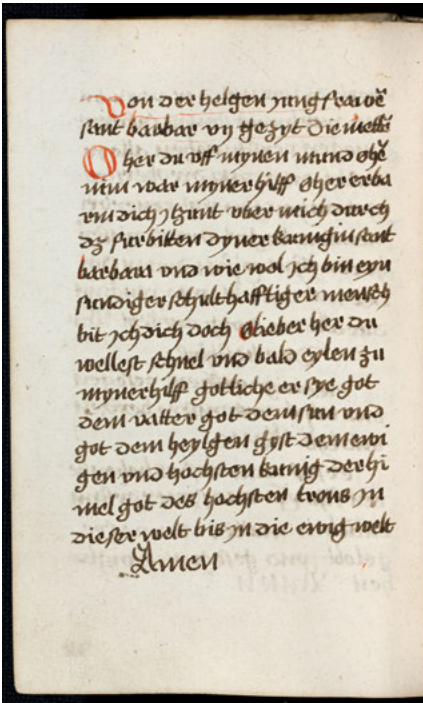 Von der helgen jungfrawē
sant barbar vij gezyt die mettē
O her du vff mynen mund o he
nim war myner hilff o her erba
rm dich hünt vber mich durch
dz furbitten dyner künigin sant
barbara vnd wie wol ich bin eyn
sundiger schulthafftiger mensch
bit ich dich doch o lieber her du
wellest schnel vnd bald eylen zu
myner hilff gotliche er sye got
dem vatter got dem sun vnd
got dem heylgen gyst dem ewi
gen vnd hochsten kunig der hi
mel got des hochsten trons jn
dieser welt bis jn die ewig welt
Amen